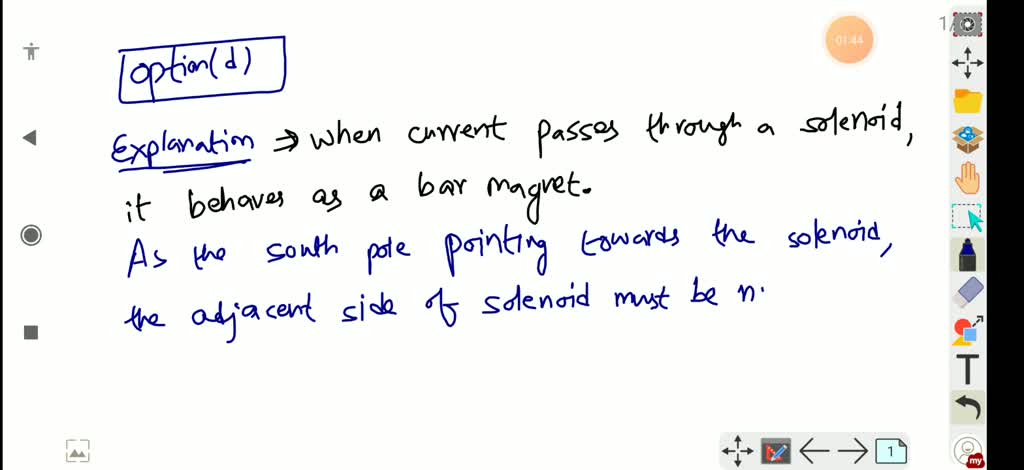 option(d)
Explanation ⇒ when current passes through a solenoid,
it behaves as a bar magnet.
As the south pole pointing towards the solenoid,
the adjacent side of solenoid must be n.
01:44
1/
T
1
my